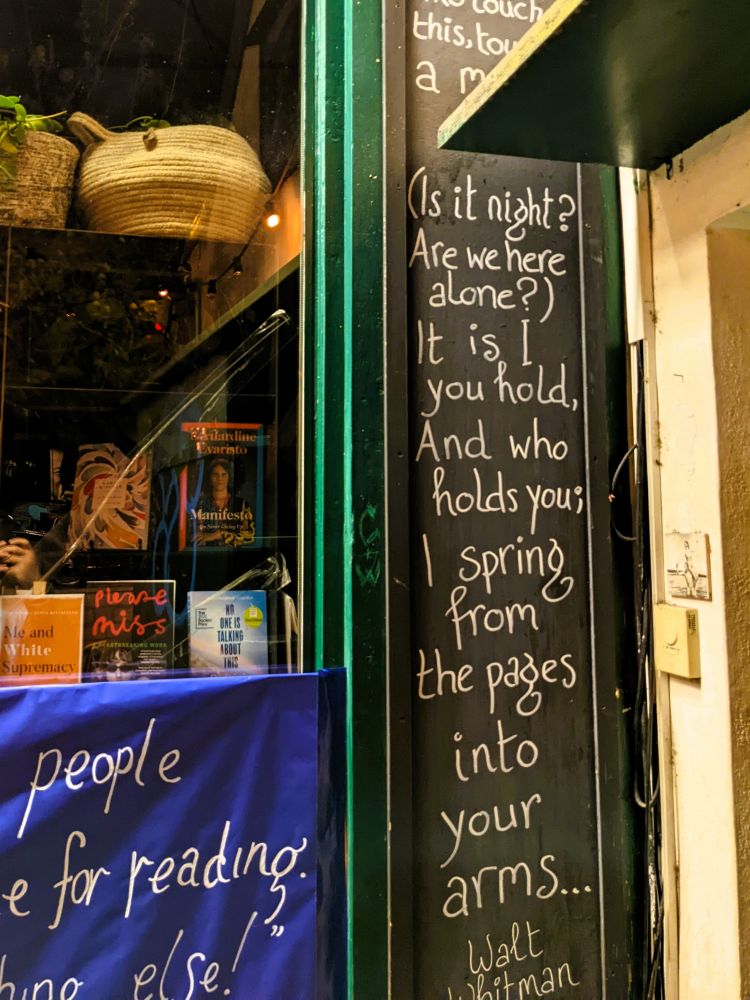 touch
this,
a
(Is it night?
Are we here
alone?)
It is I
you hold,
And who
holds you;
I spring
from
the pages
into
your
arms...
Walt
Whitman
Bernardine
Evaristo
Manifesto
On Never Giving Up
Me and
White
Supremacy
Please
miss
A HEARTBREAKING WORK
NO
ONE IS
TALKING
ABOUT
THIS
people
for reading.
else!"